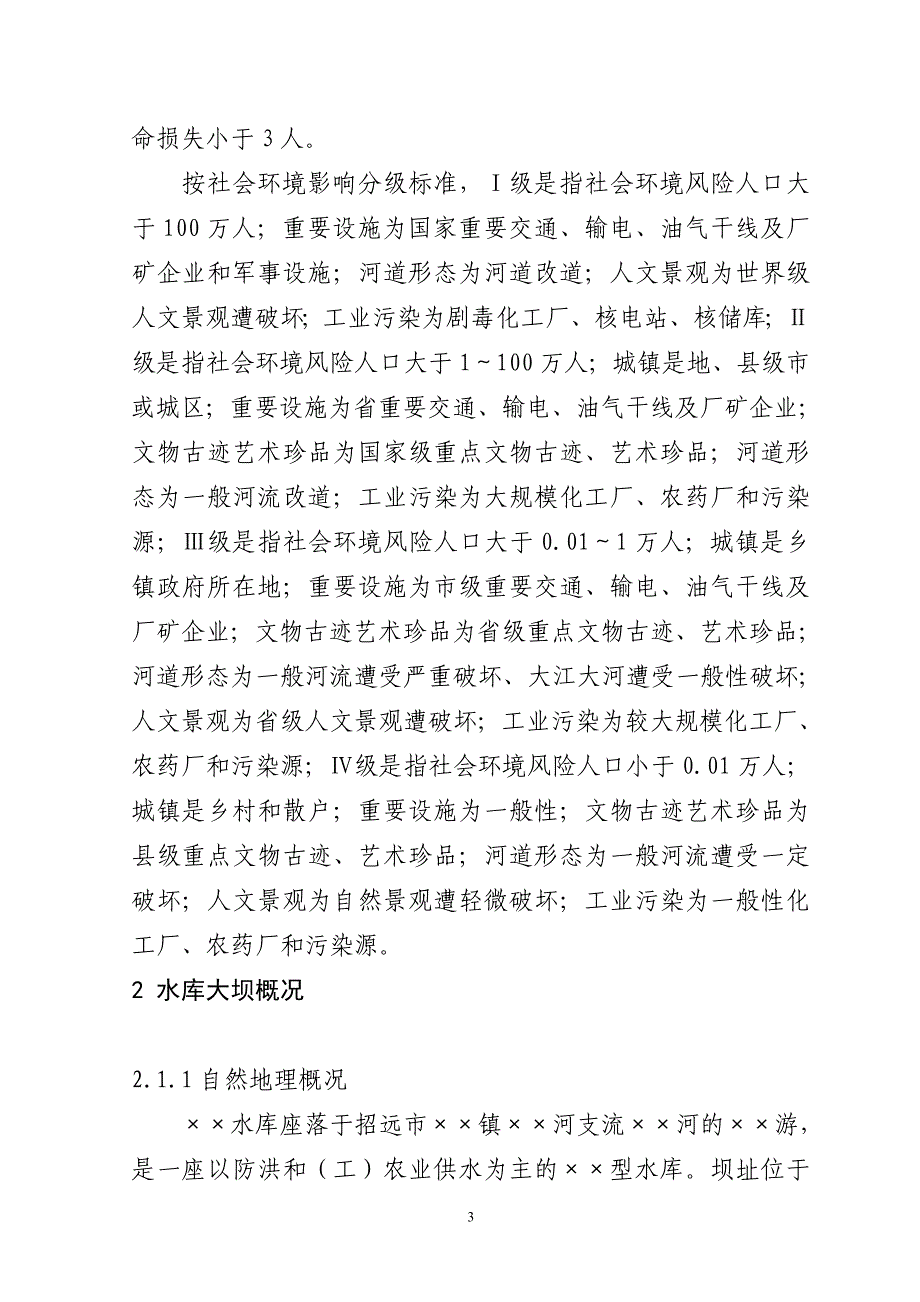 命损失小于3人。
按社会环境影响分级标准，Ⅰ级是指社会环境风险人口大
于100万人；重要设施为国家重要交通、输电、油气干线及厂
矿企业和军事设施；河道形态为河道改道；人文景观为世界级
人文景观遭破坏；工业污染为剧毒化工厂、核电站、核储库；Ⅱ
级是指社会环境风险人口大于1～100万人；城镇是地、县级市
或城区；重要设施为省重要交通、输电、油气干线及厂矿企业；
文物古迹艺术珍品为国家级重点文物古迹、艺术珍品；河道形
态为一般河流改道；工业污染为大规模化工厂、农药厂和污染
源；Ⅲ级是指社会环境风险人口大于0.01～1万人；城镇是乡
镇政府所在地；重要设施为市级重要交通、输电、油气干线及
厂矿企业；文物古迹艺术珍品为省级重点文物古迹、艺术珍品；
河道形态为一般河流遭受严重破坏、大江大河遭受一般性破坏；
人文景观为省级人文景观遭破坏；工业污染为较大规模化工厂、
农药厂和污染源；Ⅳ级是指社会环境风险人口小于0.01万人；
城镇是乡村和散户；重要设施为一般性；文物古迹艺术珍品为
县级重点文物古迹、艺术珍品；河道形态为一般河流遭受一定
破坏；人文景观为自然景观遭轻微破坏；工业污染为一般性化
工厂、农药厂和污染源。
2 水库大坝概况
2.1.1自然地理概况
××水库座落于招远市××镇××河支流××河的××游，
是一座以防洪和（工）农业供水为主的××型水库。坝址位于
3